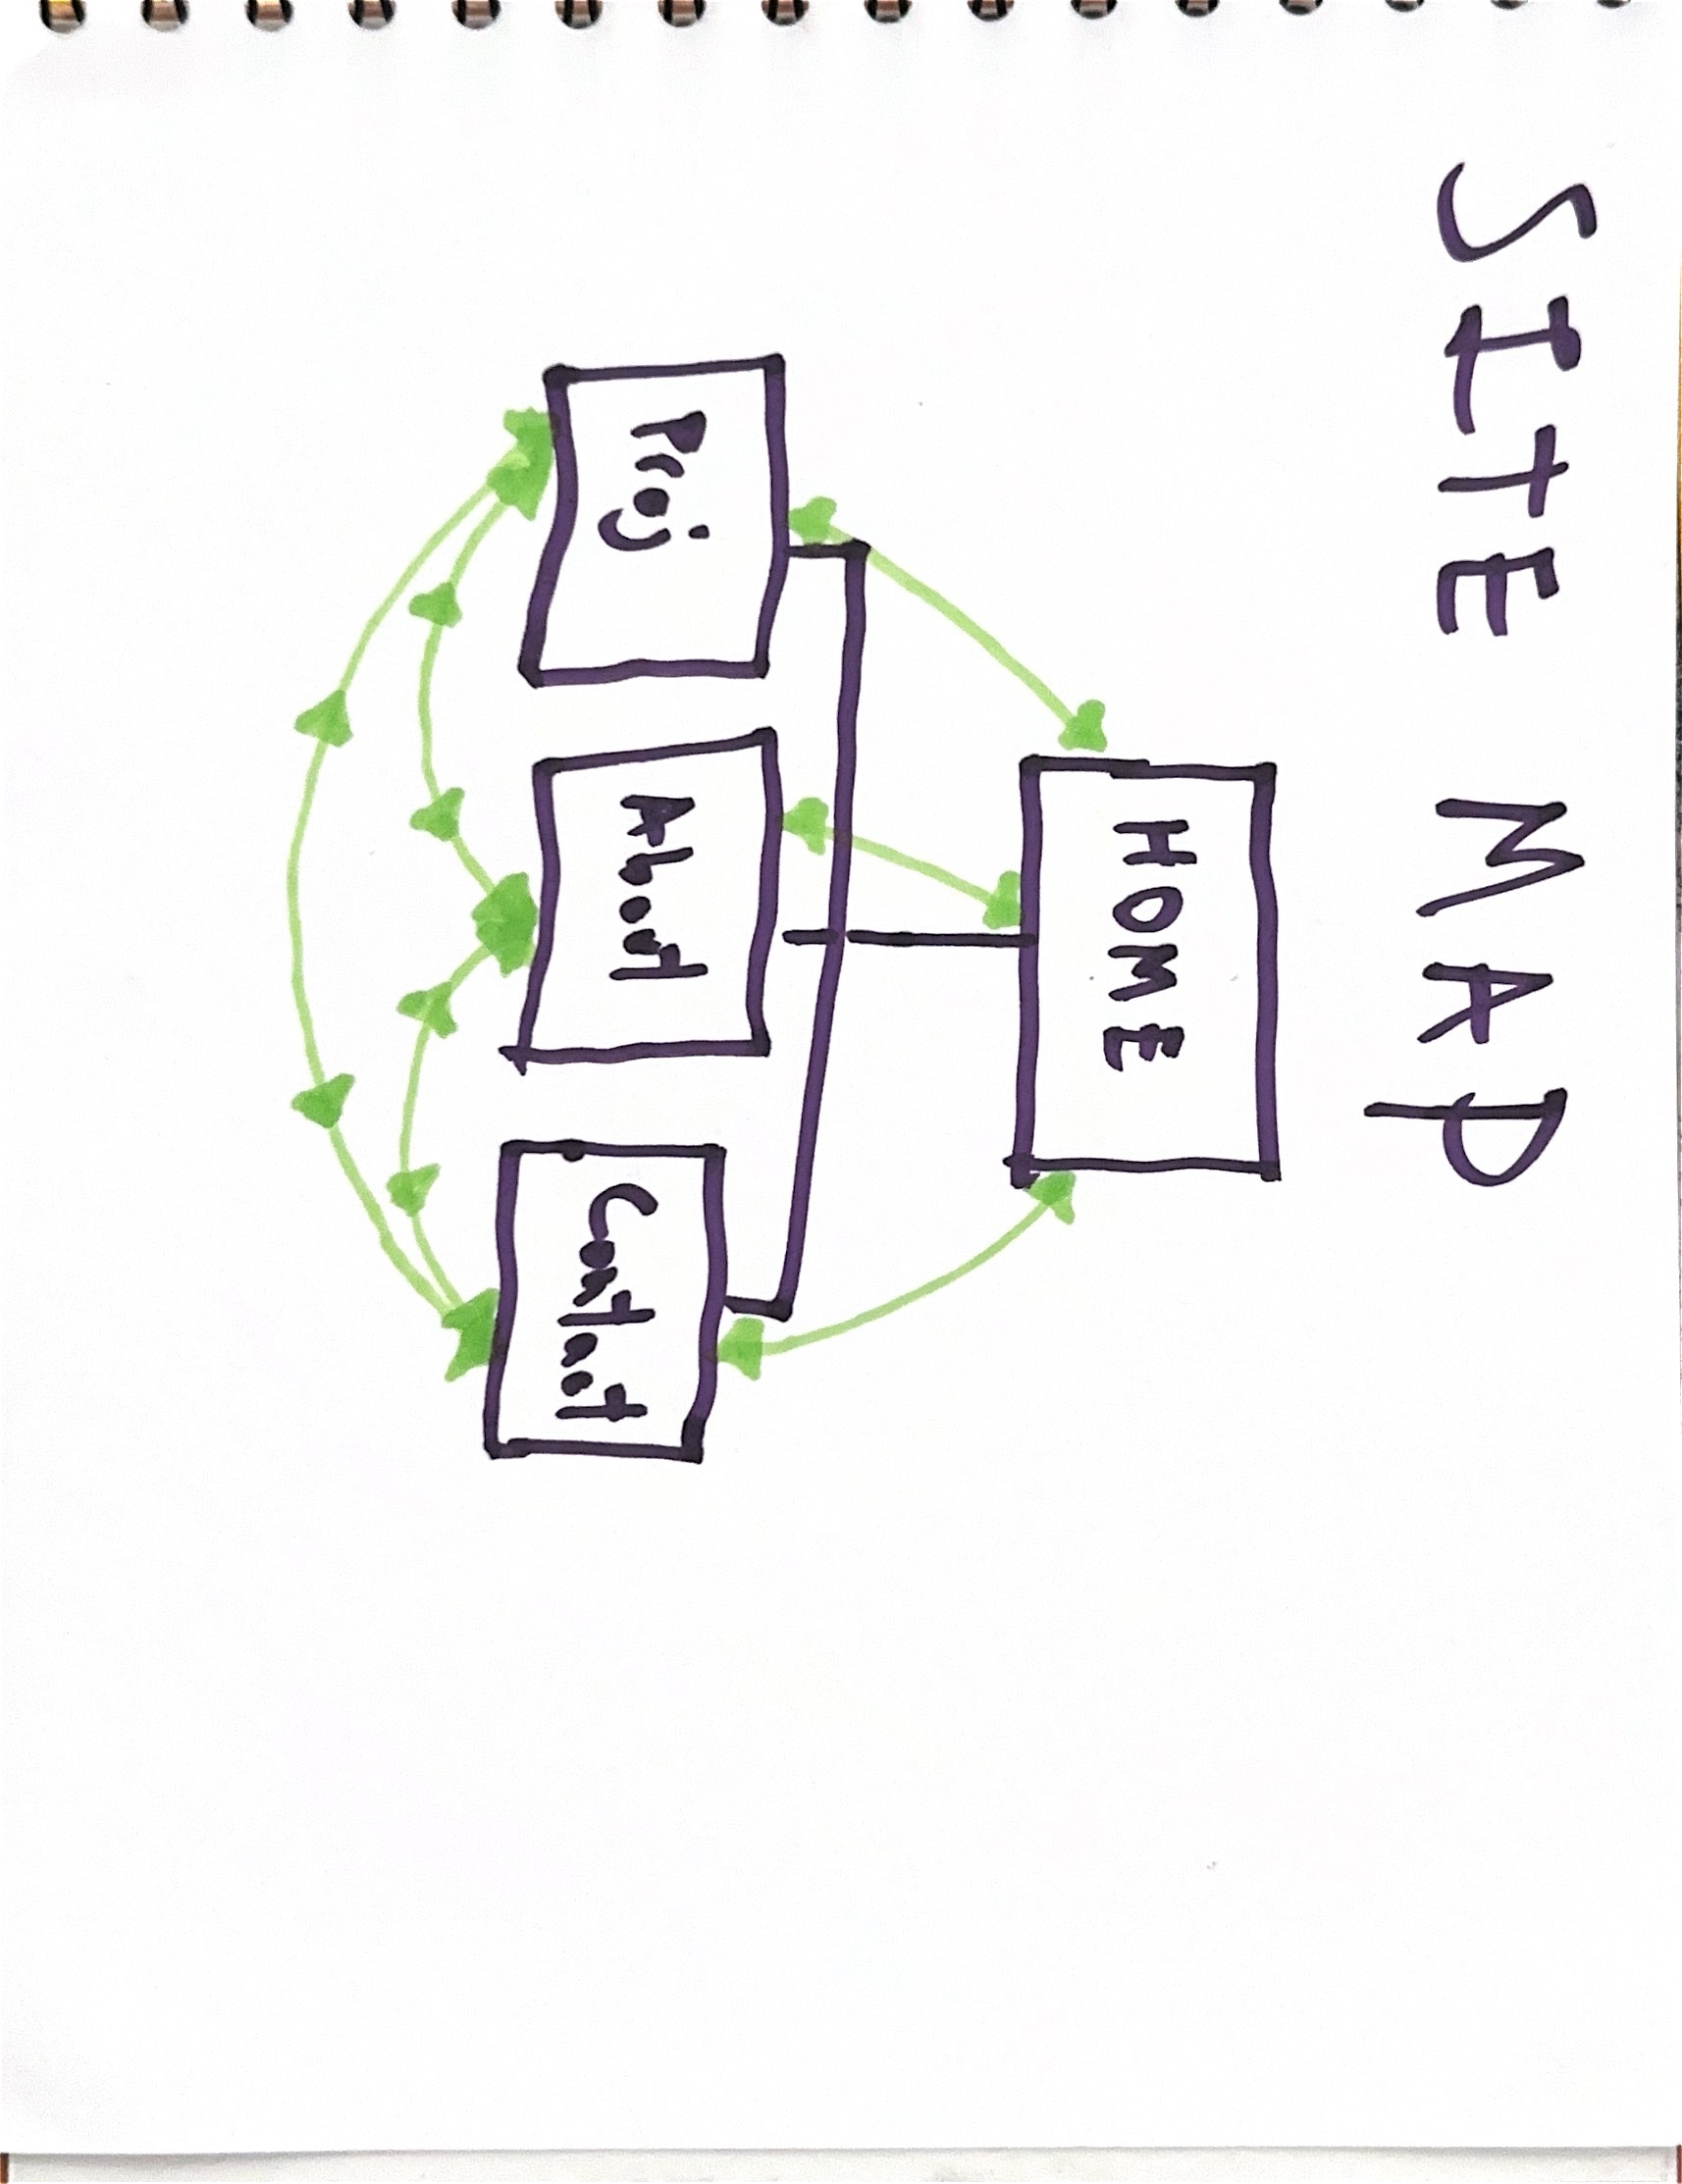 SITE MAP
HOME
Proj
About
Contact